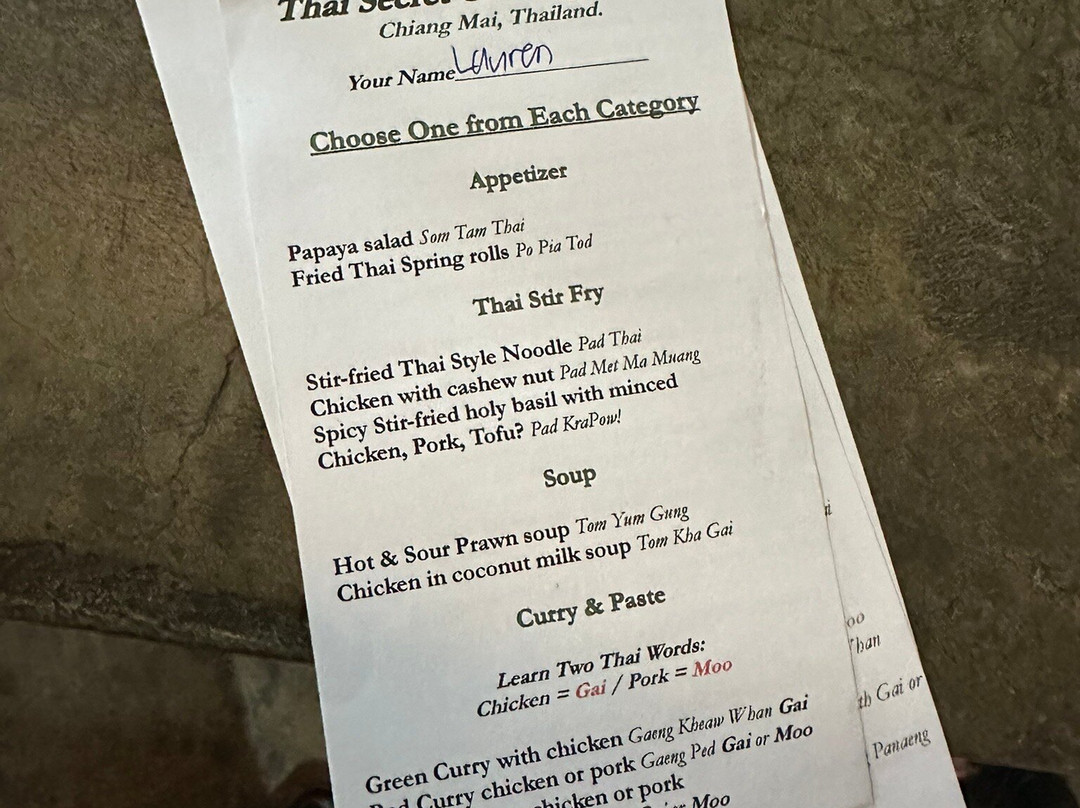 Thai Secret
Chiang Mai, Thailand.
Your Name Lauren
Choose One from Each Category
Appetizer
Papaya salad Som Tam Thai
Fried Thai Spring rolls Po Pia Tod
Thai Stir Fry
Stir-fried Thai Style Noodle Pad Thai
Chicken with cashew nut Pad Met Ma Muang
Spicy Stir-fried holy basil with minced
Chicken, Pork, Tofu? Pad KraPow!
Soup
Hot & Sour Prawn soup Tom Yum Gung
Chicken in coconut milk soup Tom Kha Gai
Curry & Paste
Learn Two Thai Words:
Chicken = Gai / Pork = Moo
Green Curry with chicken Gaeng Kheaw Whan Gai
Red Curry chicken or pork Gaeng Ped Gai or Moo
chicken or pork
or Moo
th Gai or
Panaeng